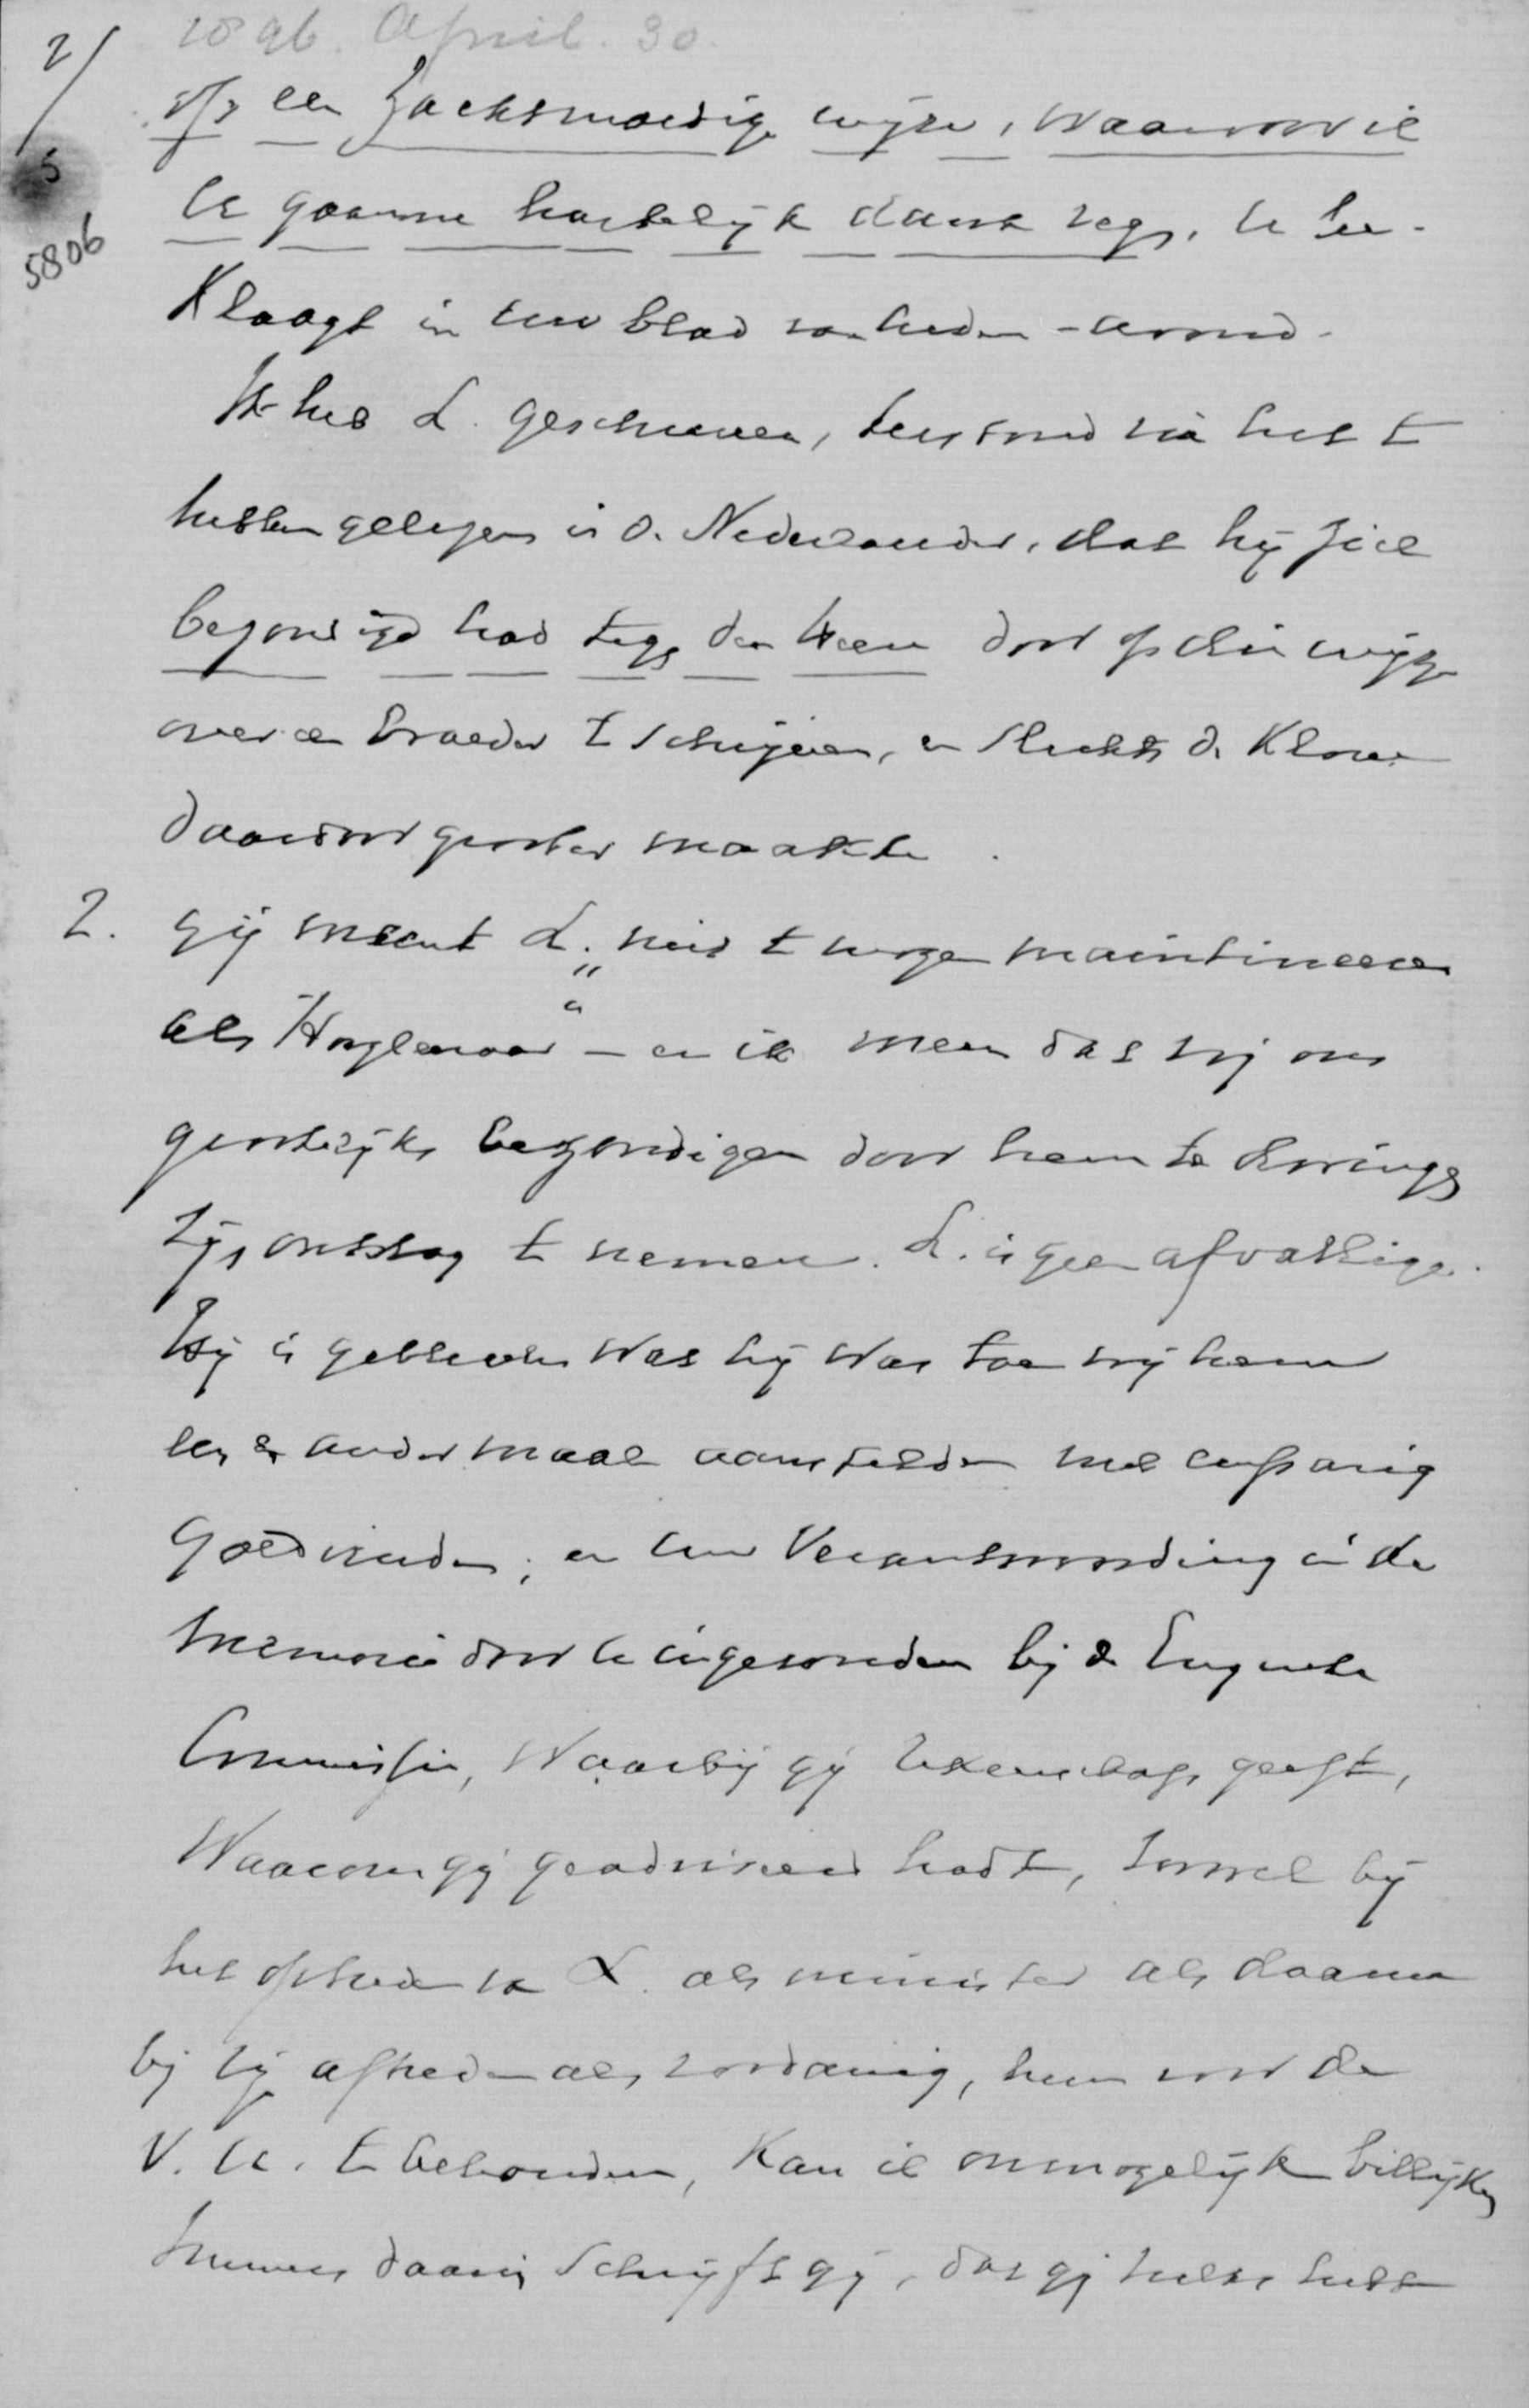 1896. April. 30.
2/
5
5806
op een zachtmoedige wijze, waarvoor ik
U gaarne hartelijk dank zeg, U be-
klaagt in uw blad van heden-avond.
Ik heb L. geschreven, terstond na het te
hebben gelezen in De Nederlander, dat hij zich
bezondigd had tegen den Heer door op die wijze
over een broeder te schrijven, en slechts de klove
daardoor grooter maakte.
2. Gij meent L. "niet te mogen maintineeren
als Hoogleeraar" - en ik meen dat wij ons
grootelijks bezondigen door hem te dwingen
zijn ontslag te nemen. L. is geen afvallige.
Hij is gebleven wat hij was toen wij hem
ten andermaal aanstelden met eenparig
goedvinden; en uw Verantwoording in de
memorie door U ingezonden bij de Enquete
Commissie, waarbij gij rekenschap geeft,
waarom gij geadviseerd hadt, zoowel bij
het optreden van L. als minister als daarna
bij zijn aftreden als zoodanig, hem voor de
V. U. te behouden, kan ik onmogelijk billijken
Immers daarin schrijft gij, dat gij hebt